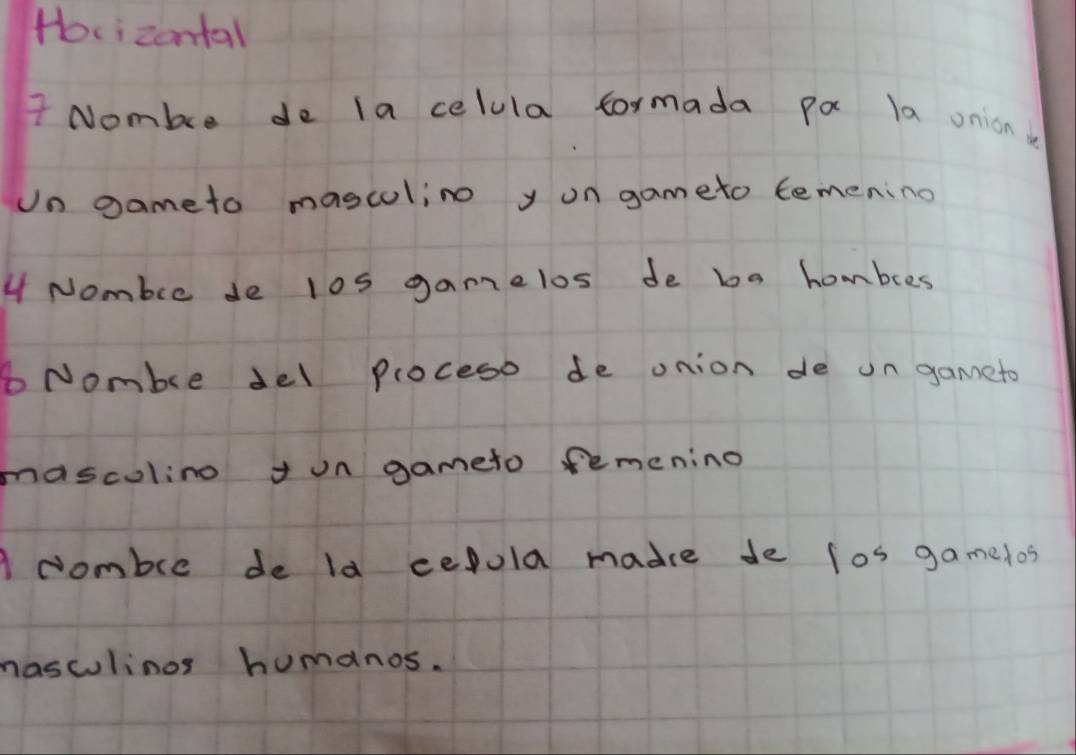 Horizontal
7 Nombre de la celula formada por la union de
un gameto masculino y un gameto femenino
4 Nombre de los gametos de los hombres
8 Nombre del proceso de union de un gameto
masculino y un gameto femenino
Nombre de la celula madre de los gametos
masculinos humanos.